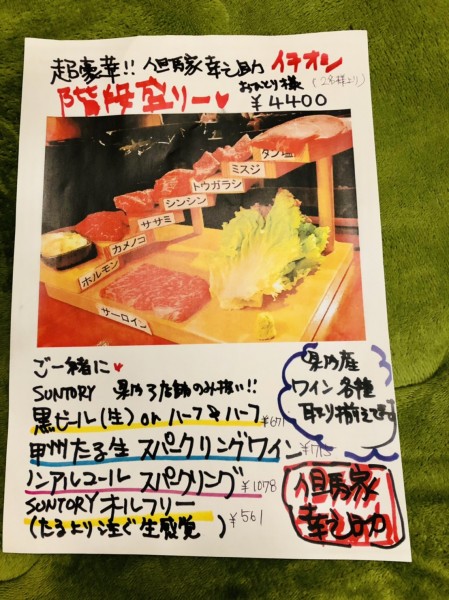 超豪華!! 但馬家幸之助 イチオシ
階段盛り〜♥
おひとり様 (2名様より)
¥4400
タン塩
ミスジ
トウガラシ
シンシン
ササミ
カメノコ
ホルモン
サーロイン
ご一緒に♥
SUNTORY 県内3店舗のみ扱い!!
黒ビール(生) or ハーフ&ハーフ ¥671
甲州たる生 スパークリングワイン ¥715
ノンアルコール スパークリング ¥1078
SUNTORY オールフリー
(たるより注ぐ生感覚) ¥561
県内産
ワイン各種
取り揃えてます
但馬家
幸之助